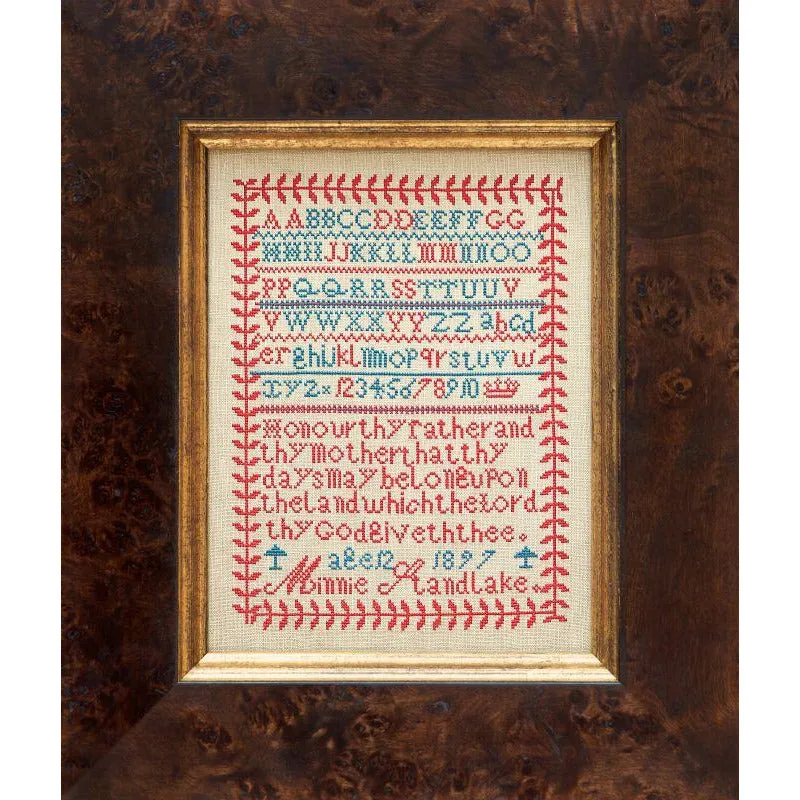 AABBCCDDEEFFGG
HHIIJJKKLLMMNNOO
PPQQRRSSTTUUV
VWWXXYYZZabcd
efghijklmnopqrstuvw
xyz×12345678910
Honourthyfatherand
thymotherthatthy
daysmaybelongupon
thelandwhichtheLord
thyGodgiveththee.
age12 1897
Minnie Handlake.